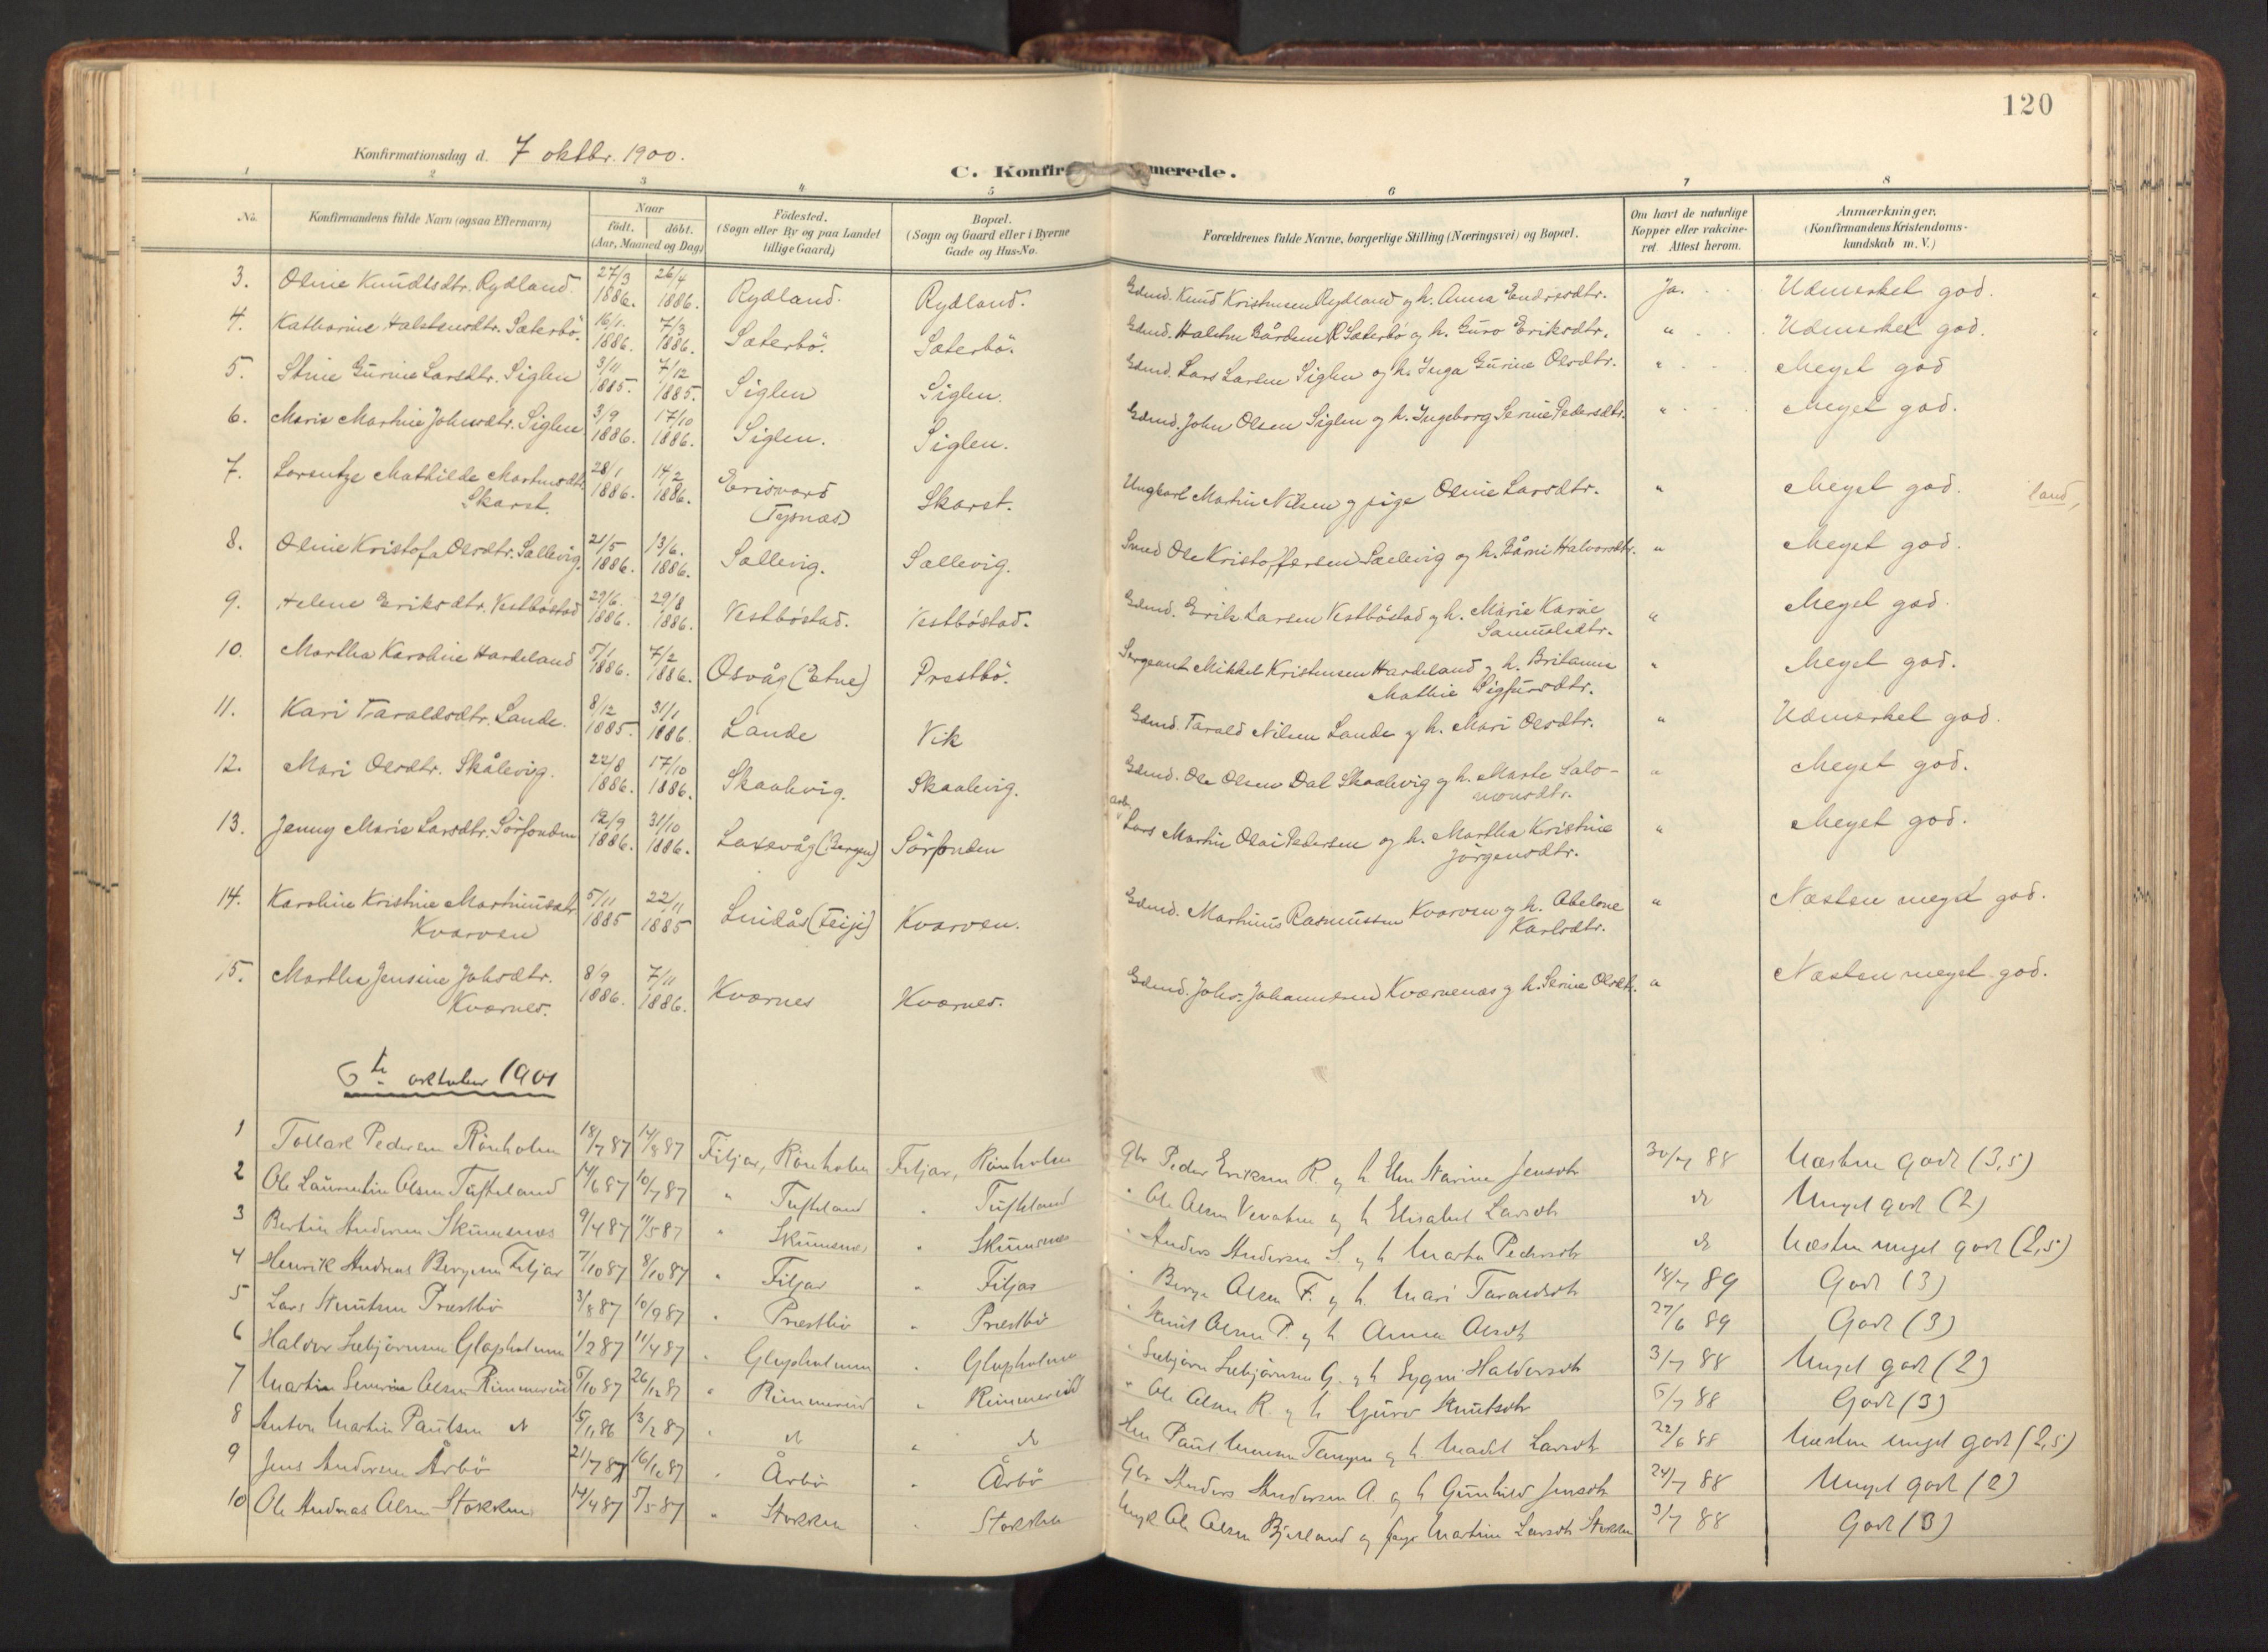 120
Konfirmationsdag d. 7 oktbr. 1900.
C. Konfir merede.
1 2 3 4 5 6 7 8
No.
Konfirmandens fulde Navn (ogsaa Efternavn)
Naar
födt. döbt.
(Aar, Maaned og Dag)
Födested.
(Sogn eller By og paa Landet
tillige Gaard)
Bopæl.
(Sogn og Gaard eller i Byerne
Gade og Hus-No.
Forældrenes fulde Navne, borgerlige Stilling (Næringsvei) og Bopæl.
Om havt de naturlige
Kopper eller vakcine-
ret. Attest herom.
Anmærkninger.
(Konfirmandens Kristendoms-
kundskab m. V.)
3. Oline Knudtsdtr. Rydland. 27/3 1886. 26/4 1886. Rydland. Rydland. Gdmd. Knud Kristensen Rydland og h. Anna Endresdtr. Ja. Udmerket god.
4. Katharine Halstensdtr. Sæterbö. 16/1. 1886. 7/3 1886. Sæterbö. Sæterbö. Gdmd. Halsten Bårdsen Sæterbö og h. Guro Eriksdtr. " Udmerket god.
5. Stine Gurine Larsdtr. Siglen 3/11 1885. 7/12 1885. Siglen Siglen. Gdmd. Lars Larsen Siglen og h. Inga Gurine Olsdtr. " Meget god
6. Marie Martine Johnsdtr. Siglen 3/9 1886. 17/10 1886. Siglen. Siglen. Gdmd. John Olsen Siglen og h. Ingeborg Serine Pedersdtr. " Meget god.
7. Lorentze Mathilde Martinsdtr. 28/1 1886. 14/2 1886. Skarst. Ungkarl Martin Nilsen og pige Oline Larsdtr. " Meget god. land,
Skarst. (Tysnæs)
8. Oline Kristofa Olsdtr. Sællevig. 21/5 1886. 13/6. 1886. Sællevig. Sællevig. Smed Ole Kristoffersen Sællevig og h. Halvorsdtr. " Meget god.
9. Helene Eriksdtr. Vestböstad 29/6. 1886. 29/8 1886. Vestböstad. Vestböstad. Gdmd. Erik Larsen Vestböstad og h. Marie Karine " Meget god.
Samuelsdtr.
10. Martha Karoline Hardeland 5/1 1886. 7/2 1886. Osvåg (Etne) Prestbö. Sergeant Mikkel Kristensen Hardeland og h. Britannie " Meget god.
Mathie Sigfursdtr.
11. Kari Taraldsdtr. Lande. 8/12 1885. 31/1 1886. Lande Vik Gdmd. Tarald Nilsen Lande og h. Mari Olsdtr. " Udmerket god.
12. Mari Olsdtr. Skålevig. 22/8 1886. 17/10 1886. Skaalevig. Skaalevig. Gdmd. Ole Olsen Dal Skaalevig og h. Marte Salo- " Meget god.
monsdtr.
13. Jenny Marie Larsdtr. Sörfonden 12/9 1886. 31/10 1886. Laxevåg (Bergen) Sörfonden arb. Lars Martin Olai Pedersen og h. Martha Kristine " Meget god.
Jörgensdtr.
14. Karoline Kristine Martinusdtr. 5/11 1885 22/11 1885 Lindås (Feije) Kvarven. Gdmd. Martinus Rasmussen Kvarven og h. Abelone " Næsten meget god.
Kvarven Karlsdtr.
15. Martha Jensine Johsdtr. 8/9 1886. 7/11 1886. Kvernes Kvernes. Gdmd. Johs. Johannesen Kvernenæs og h. Serine Olsdtr. " Næsten meget god.
Kvernes.
6te oktober 1901
1 Tollak Pedersen Rönholm 18/7 87 14/8 87 Fitjar, Rönholm Fitjar, Rönholm Gbr Peder Eriksen R. og h. Marine Jensdtr 30/7 88 Næsten godt (3,5)
2 Ole Laurentin Olsen Tufteland 14/6 87 10/7 87 " Tufteland " Tufteland " Ole Olsen og h Elisabet Larsdtr do Meget godt (2)
3 Bertin Andersen Skumsnes 9/4 87 11/5 87 " Skumsnes " Skumsnes " Anders Andersen S. og h Marta Pedersdtr do Næsten meget godt (2,5)
4 Henrik Andreas Bergesen Fitjar 7/10 87 8/10 87 " Fitjar " Fitjar " Berge Olsen F. og h. Mari Taraldsdtr 18/7 89 Godt (3)
5 Lars Knutsen Præstbö 3/8 87 10/9 87 " Præstbö " Præstbö " Knut Olsen P. og h Anna Olsdtr 27/6 89 Godt (3)
6 Haldor Sæbjörnsen Glopholmen 1/2 87 11/4 87 " Glopholmen " Glopholmen " Sæbjörn Sæbjörnsen G. og h Haldorsdtr 3/7 88 Meget godt (2)
7 Martin Severin Olsen Rimmereid 5/10 87 26/12 87 " Rimmereid " Rimmereid " Ole Olsen R. og h Guro Knutsdtr 5/7 88 Godt (3)
8 Anton Martin Paulsen do 15/11 86 13/2 87 " do " do Paul Tangen og h Larsdtr 22/6 88 Næsten meget godt (2,5)
9 Jens Andersen Årbö 21/7 87 16/10 87 " Årbö " Årbö Gbr Anders Andersen A. og h Gunhild Jensdtr 24/7 88 Meget godt (2)
10 Ole Andreas Olsen Stokken 14/4 87 5/5 87 " Stokken " Stokken Ungk Ole Olsen Bjelland og pige Martine Larsdtr Stokken 3/7 88 Godt (3)